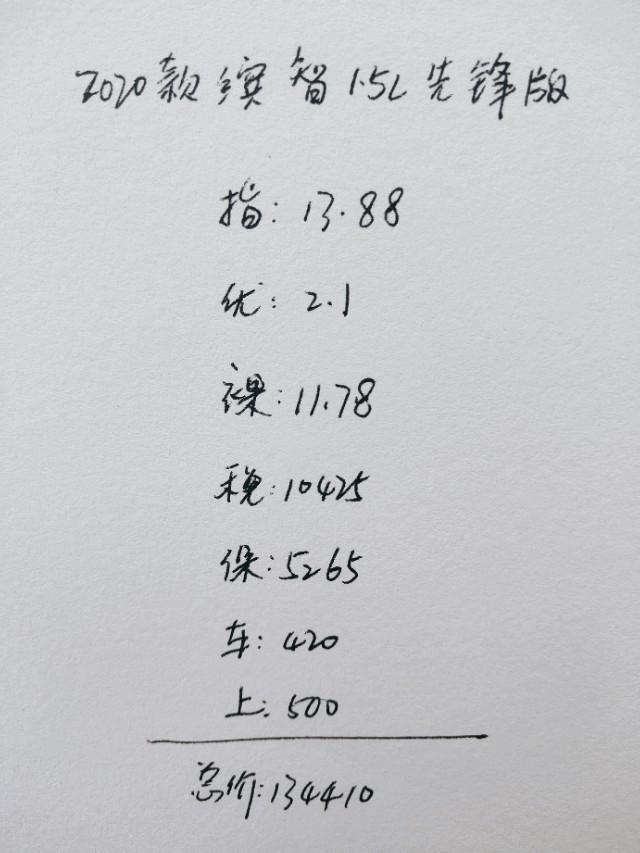 2020款缤智1.5L先锋版
指:13.88
优:2.1
裸:11.78
税:10425
保:5265
车:420
上:500
总价:134410